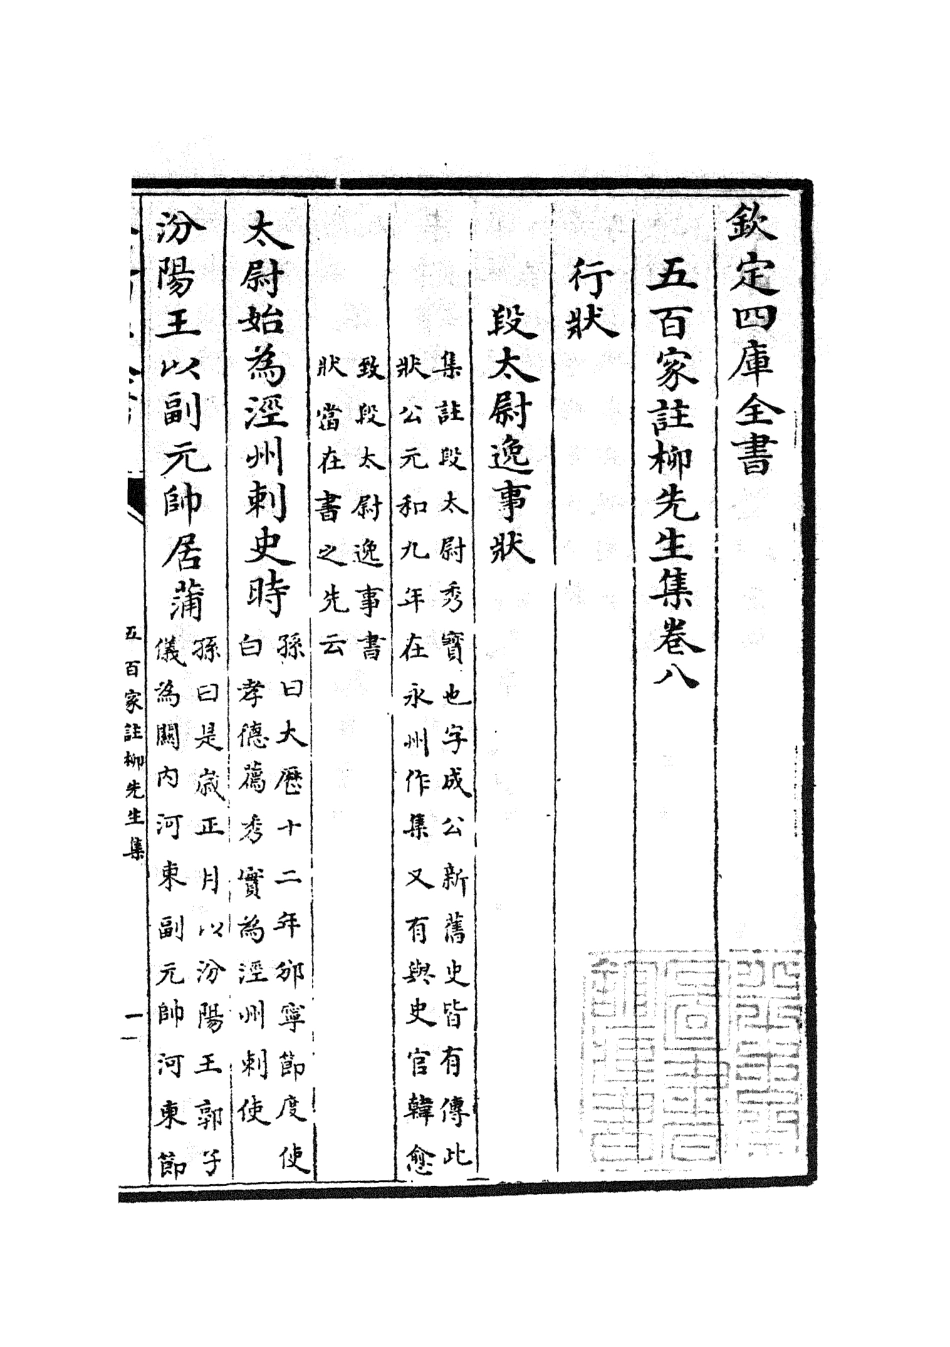 欽定四庫全書
五百家註柳先生集卷八
行狀
段太尉逸事狀
集註段太尉秀實也字成公新舊史皆有傳此
狀公元和九年在永州作集又有與史官韓愈
致段太尉逸事書
狀當在書之先云
太尉始為涇州刺史時
孫曰大歷十二年邠寧節度使
白孝德薦秀實為涇州刺使
汾陽王以副元帥居蒲
孫曰是歲正月以汾陽王郭子
儀為關內河東副元帥河東節
五百家註柳先生集
一